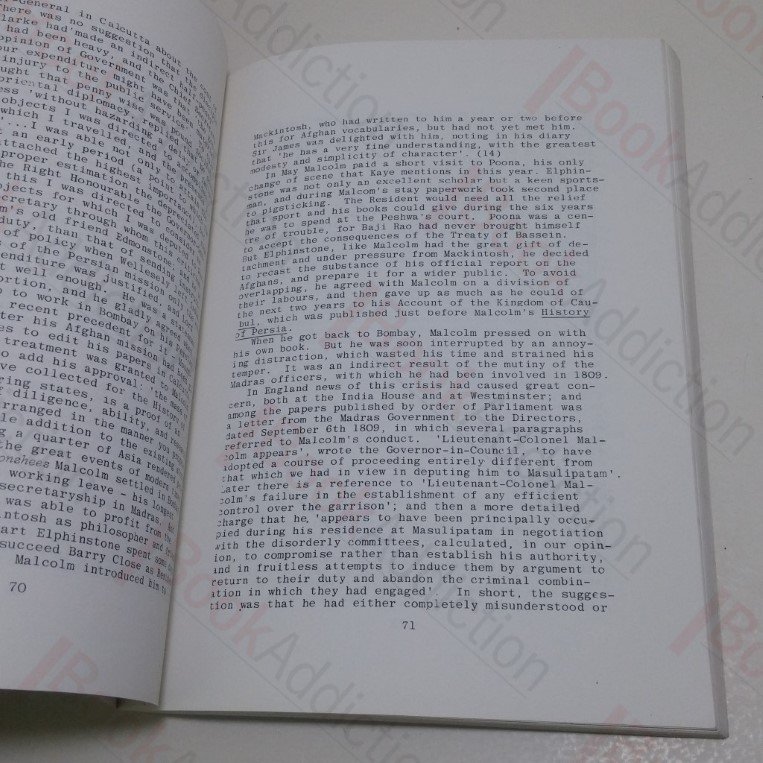 -General in Calcutta about the
here was no suggestion that
larke had made an indirect
had been heavy, and the Chief
opinion of Government that
our expenditure might have been
injury to the public service
ught that penny wise was
oriental diplomacy, replied
ess 'without hazarding
objects I was directed to
which I travelled, not only
...I was able to
an early period (a point
attached the highest importance
proper estimation the
the Right Honourable the Governor
this I was directed to
objects for which I was
ecretary through whom this
m's old friend Edmonstone,
duty, than that of sending
of policy when Wellesley
s of the Persian mission,
enditure was justified, and
t well enough. He was
ortion, and he gladly agreed
to work in Bombay on his
recent precedent for
ter his Afghan mission had
es to edit his papers in Calcutta
treatment was granted to Malcolm
o add his approval. 'The
ve collected for the History
ring states, is a proof of
f diligence, ability, and
rranged in the manner you
le addition to the existing
g a quarter of Asia rendered
the great events of modern
onshees Malcolm settled in
working leave - his longest
secretaryship in Madras.
was able to profit from
ntosh as philosopher and
art Elphinstone spent some
succeed Barry Close as Resident
Malcolm introduced him to
70
Mackintosh, who had written to him a year or two before
this for Afghan vocabularies, but had not yet met him.
Sir James was delighted with him, noting in his diary
that 'he has a very fine understanding, with the greatest
modesty and simplicity of character'. (14)
In May Malcolm paid a short visit to Poona, his only
change of scene that Kaye mentions in this year. Elphin-
stone was not only an excellent scholar but a keen sports-
man, and during Malcom's stay paperwork took second place
to pigsticking. The Resident would need all the relief
that sport and his books could give during the six years
he was to spend at the Peshwa's court. Poona was a cen-
tre of trouble, for Baji Rao had never brought himself
to accept the consequences of the Treaty of Bassein.
But Elphinstone, like Malcolm had the great gift of de-
tachment and under pressure from Mackintosh, he decided
to recast the substance of his official report on the
Afghans, and prepare it for a wider public. To avoid
overlapping, he agreed with Malcolm on a division of
their labours, and then gave up as much as he could of
the next two years to his Account of the Kingdom of Cau-
bul, which was published just before Malcolm's History
of Persia.
When he got back to Bombay, Malcolm pressed on with
his own book. But he was soon interrupted by an annoy-
ing distraction, which wasted his time and strained his
temper. It was an indirect result of the mutiny of the
Madras officers, with which he had been involved in 1809.
In England news of this crisis had caused great con-
cern, both at the India House and at Westminster; and
among the papers published by order of Parliament was
a letter from the Madras Government to the Directors,
dated September 6th 1809, in which several paragraphs
referred to Malcolm's conduct. 'Lieutenant-Colonel Mal-
colm appears', wrote the Governor-in-Council, 'to have
adopted a course of proceeding entirely different from
that which we had in view in deputing him to Masulipatam'.
Later there is a reference to 'Lieutenant-Colonel Mal-
colm's failure in the establishment of any efficient
control over the garrison'; and then a more detailed
charge that he, 'appears to have been principally occu-
pied during his residence at Masulipatam in negotiation
with the disorderly committees, calculated, in our opin-
ion, to compromise rather than establish his authority,
and in fruitless attempts to induce them by argument to
return to their duty and abandon the criminal combin-
ation in which they had engaged'. In short, the sugges-
tion was that he had either completely misunderstood or
71
BookAddiction